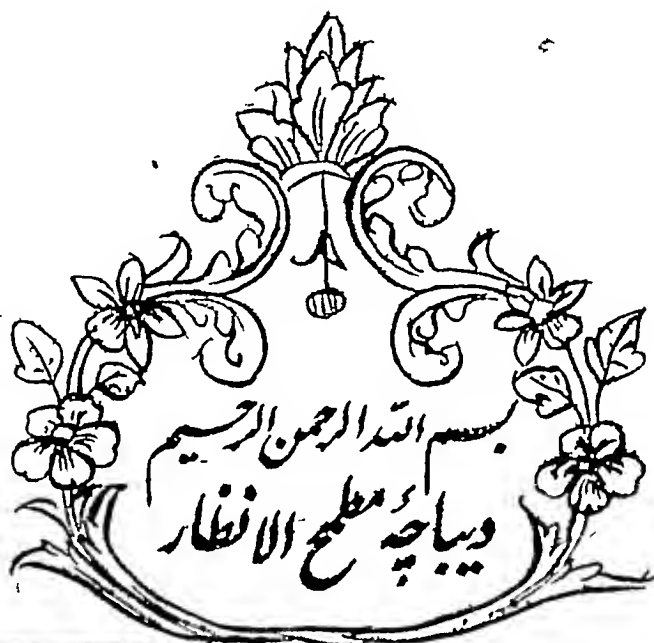 بسم الله الرحمن الرحیم
دیباچۂ مطمح الانظار